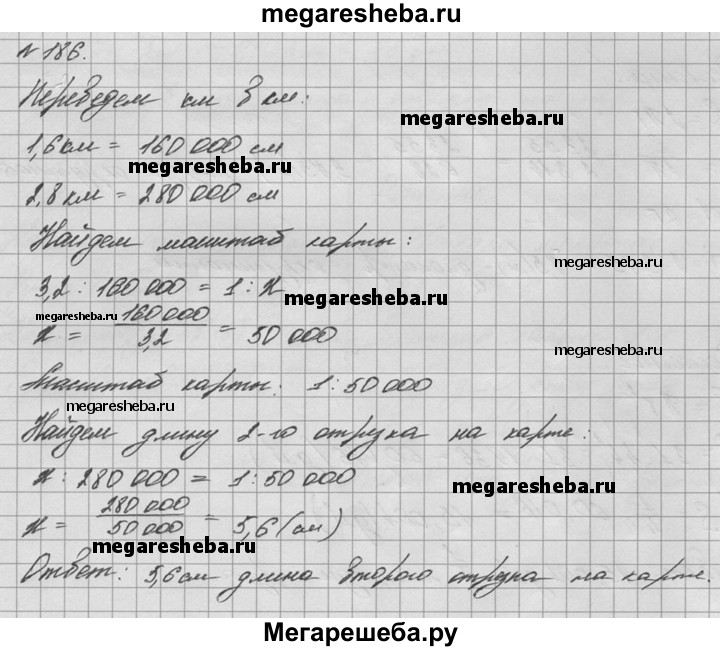 megaresheba.ru
№ 186.
Переведем км в км:
megaresheba.ru
1,6 км = 160 000 см
megaresheba.ru
2,8 км = 280 000 см
Найдем масштаб карты:
megaresheba.ru
3,2 : 160 000 = 1 : x
megaresheba.ru
megaresheba.ru
x = 160 000 / 3,2 = 50 000
megaresheba.ru
Масштаб карты: 1 : 50 000
megaresheba.ru
Найдем длину 2-го отрезка на карте:
x : 280 000 = 1 : 50 000
megaresheba.ru
x = 280 000 / 50 000 = 5,6 (см)
megaresheba.ru
Ответ: 5,6 см длина второго отрезка на карте.
Мегарешеба.ру